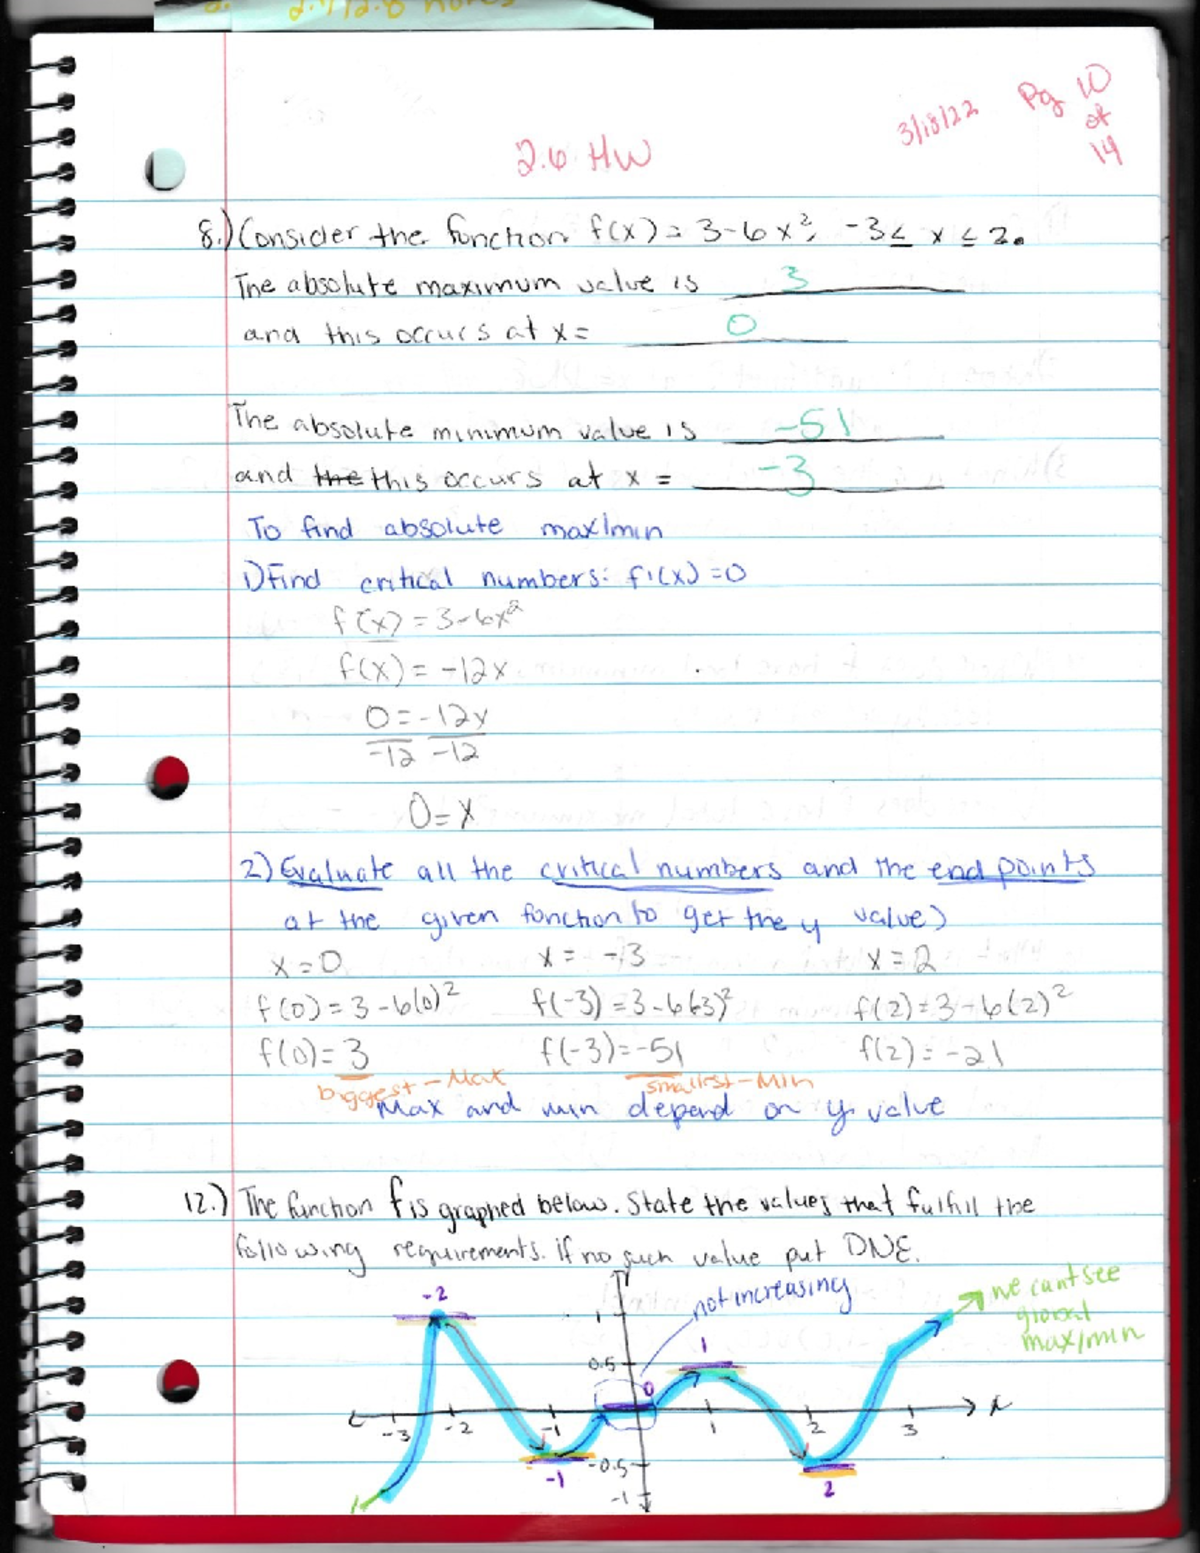 2.7/2.8 notes
3/18/22 Pg 10 of 14
2.6 HW
8.) Consider the function f(x) = 3-6x², -3 ≤ x ≤ 2.
The absolute maximum value is 3
and this occurs at x = 0
The absolute minimum value is -51
and the this occurs at x = -3
To find absolute max/min
1) Find critical numbers: f'(x) = 0
f(x) = 3-6x²
f(x) = -12x
0 = -12x
-12 -12
0 = x
2) Evaluate all the critical numbers and the end points
at the given function to get the y value)
x = 0 x = -3 x = 2
f(0) = 3-6(0)² f(-3) = 3-6(-3)² f(2) = 3-6(2)²
f(0) = 3 f(-3) = -51 f(2) = -21
biggest - Max smallest - Min
Max and min depend on y value
12.) The function f is graphed below. State the values that fulfill the
following requirements. if no such value put DNE.
not increasing
we can't see
global
max/min
-2
1
1
0.5
0
x
-3 -2 -1 1 2 3
-0.5
-1
-1
2